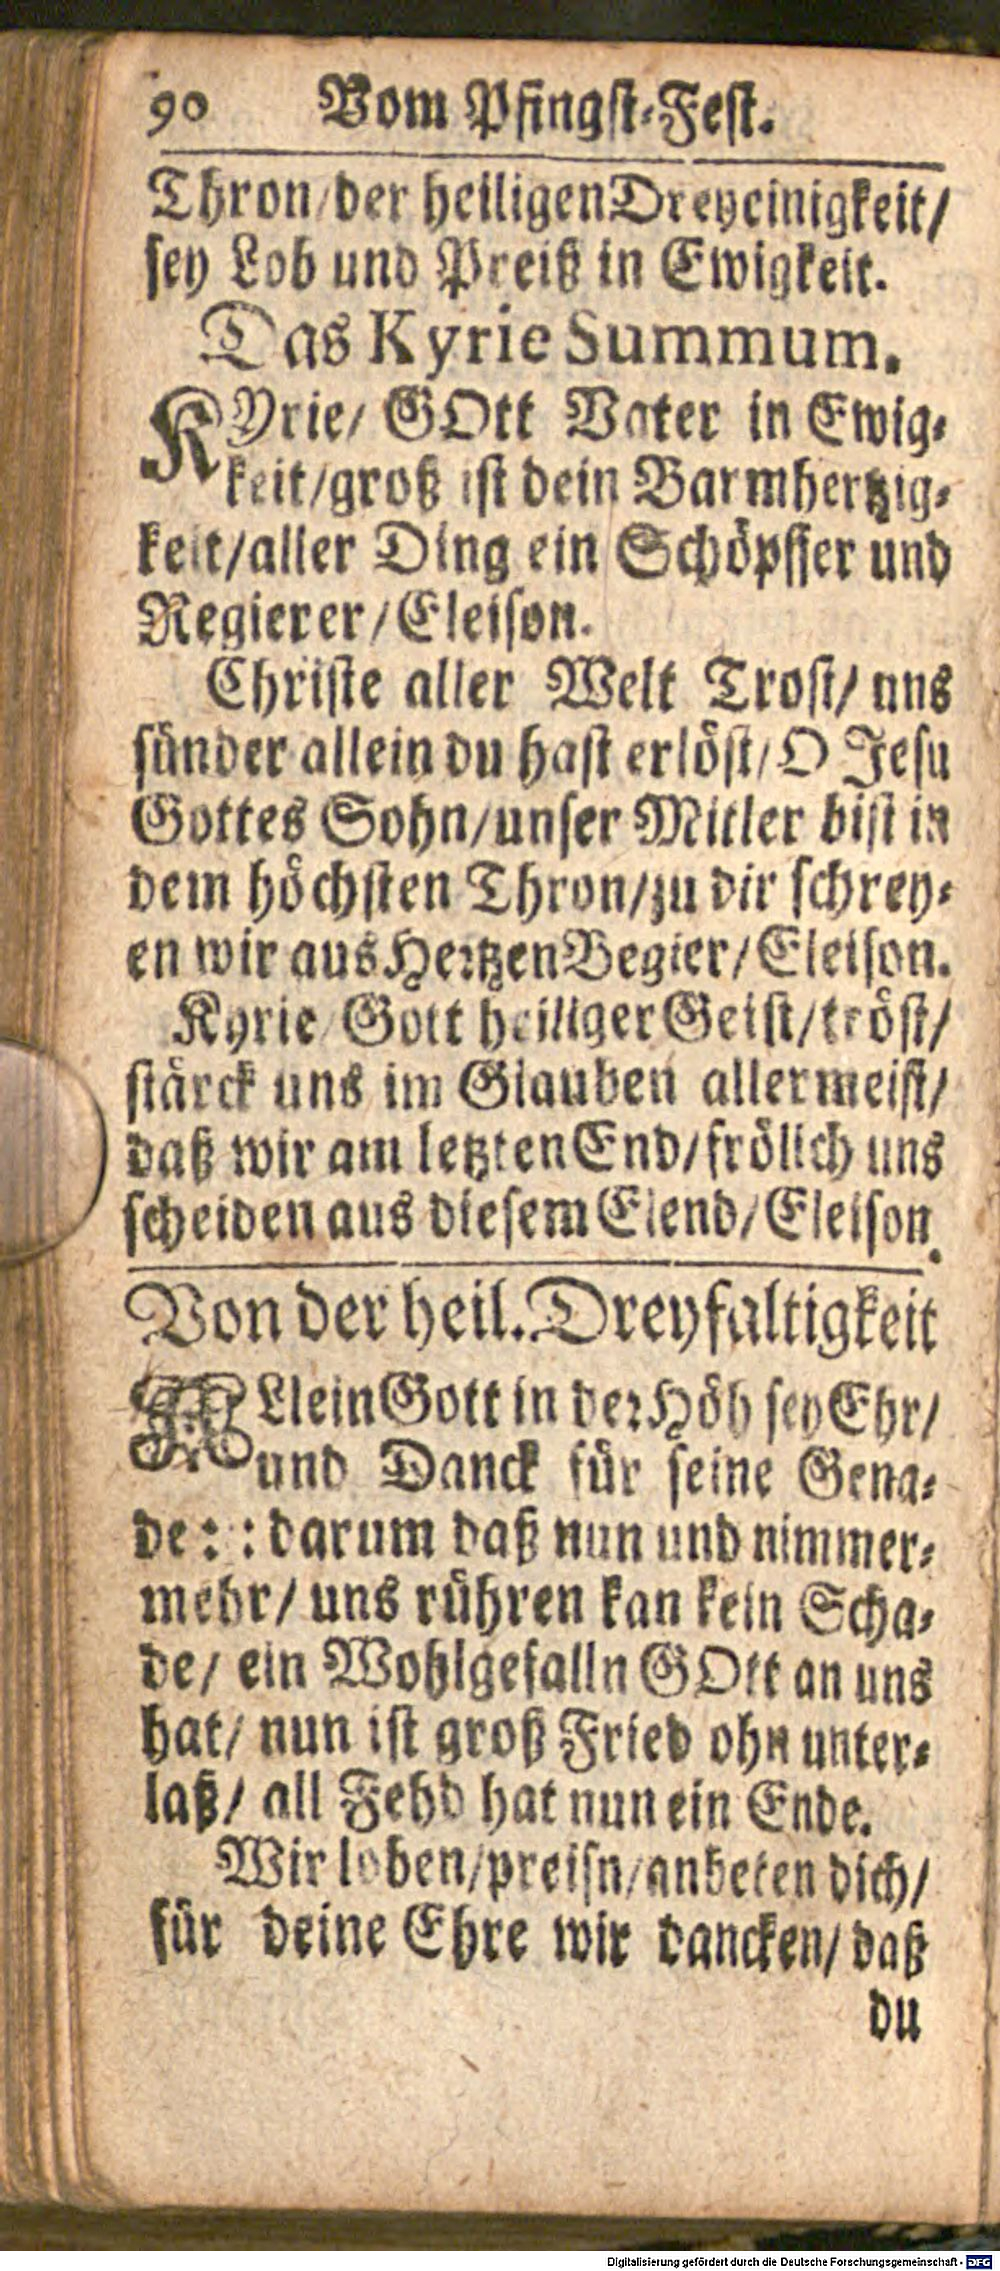 90 Vom Pfingst-Fest.
Thron/der heiligen Dreyeinigkeit/
sey Lob und Preiß in Ewigkeit.
Das Kyrie Summum.
KYrie/ GOtt Vater in Ewig-
keit/groß ist dein Barmhertzig-
keit/aller Ding ein Schöpffer und
Regierer/Eleison.
Christe aller Welt Trost/ uns
sünder allein du hast erlöst/O Jesu
Gottes Sohn/unser Mitler bist in
dem höchsten Thron/zu dir schrey-
en wir aus Hertzen Begier/Eleison.
Kyrie/Gott heiliger Geist/tröst/
stärck uns im Glauben allermeist/
daß wir am letzten End/frölich uns
scheiden aus diesem Elend/Eleison.
Von der heil. Dreyfaltigkeit
ALlein Gott in der Höh sey Ehr/
und Danck für seine Gena-
de: :darum daß nun und nimmer-
mehr/ uns rühren kan kein Scha-
de/ ein Wohlgefalln GOtt an uns
hat/ nun ist groß Fried ohn unter-
laß/ all Fehd hat nun ein Ende.
Wir loben/preisn/anbeten dich/
für deine Ehre wir dancken/ daß
du
Digitalisierung gefördert durch die Deutsche Forschungsgemeinschaft - DFG